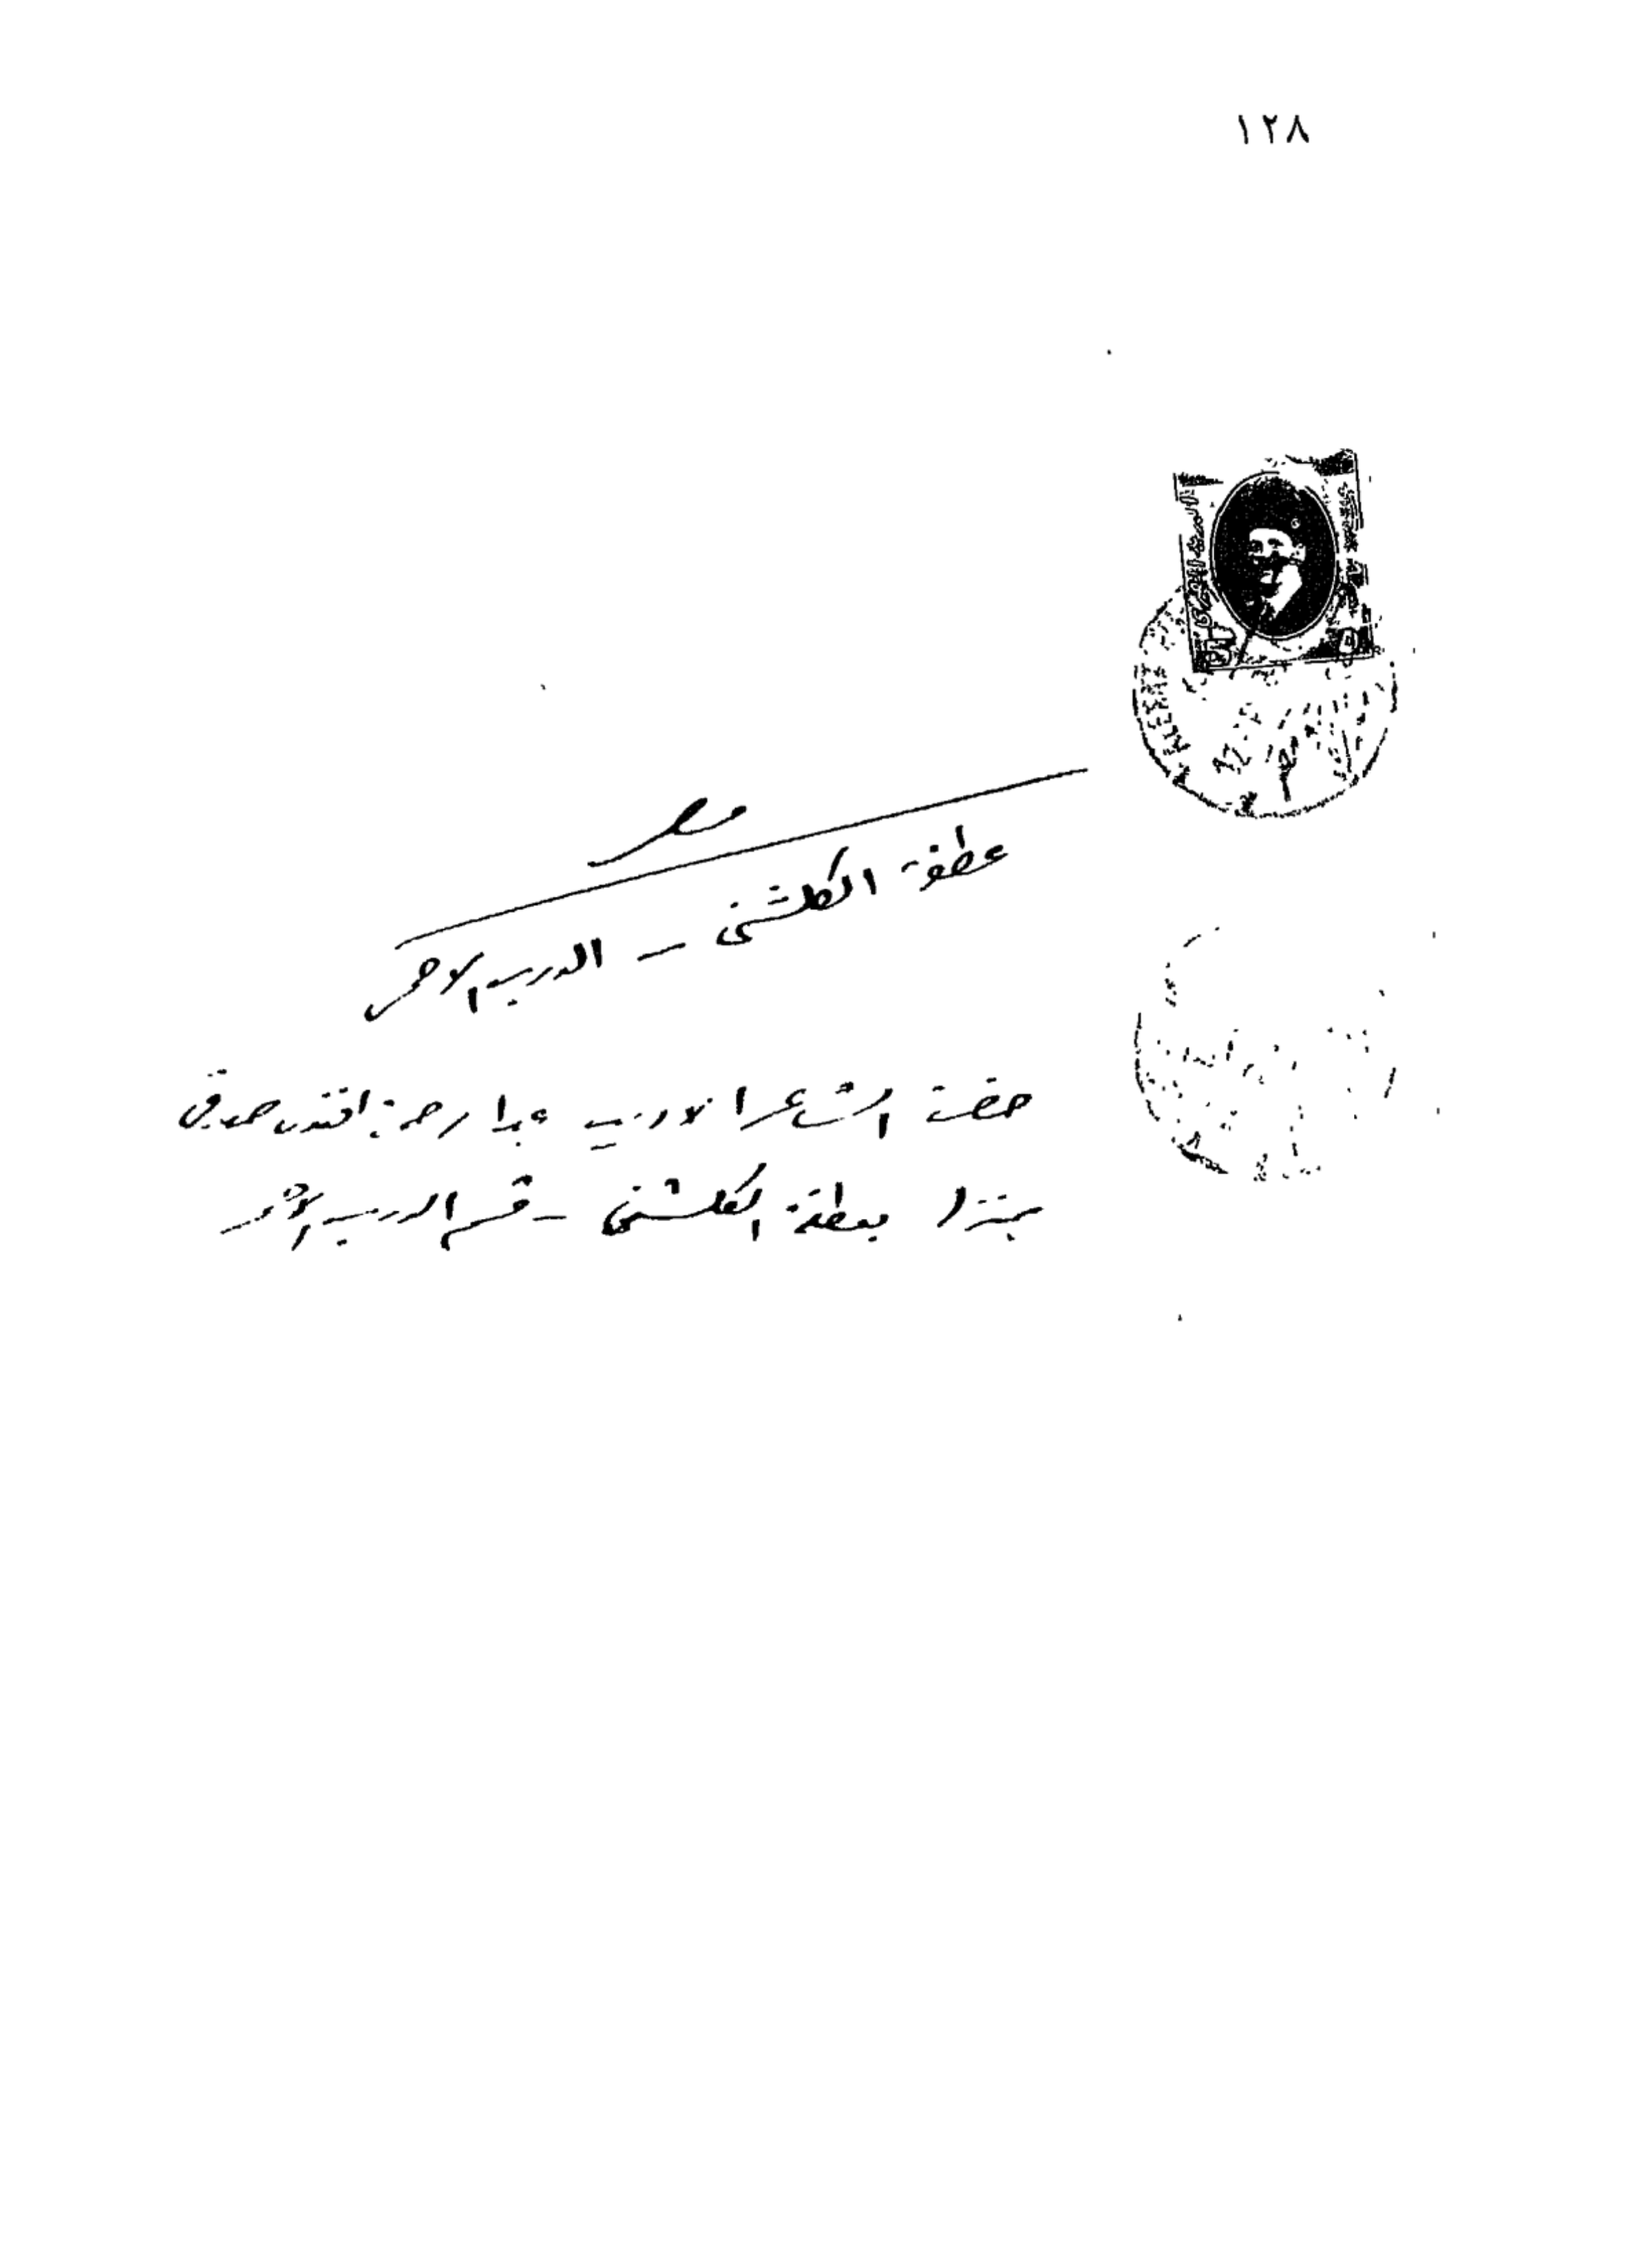 ١٢٨
مصر
عطفة الكلشنى - الدرب الاحمر
حضرة الشاعر الاديب عبد الرحمن افندى صدقى
بمنزله بعطفة الكلشنى - قسم الدرب الاحمر